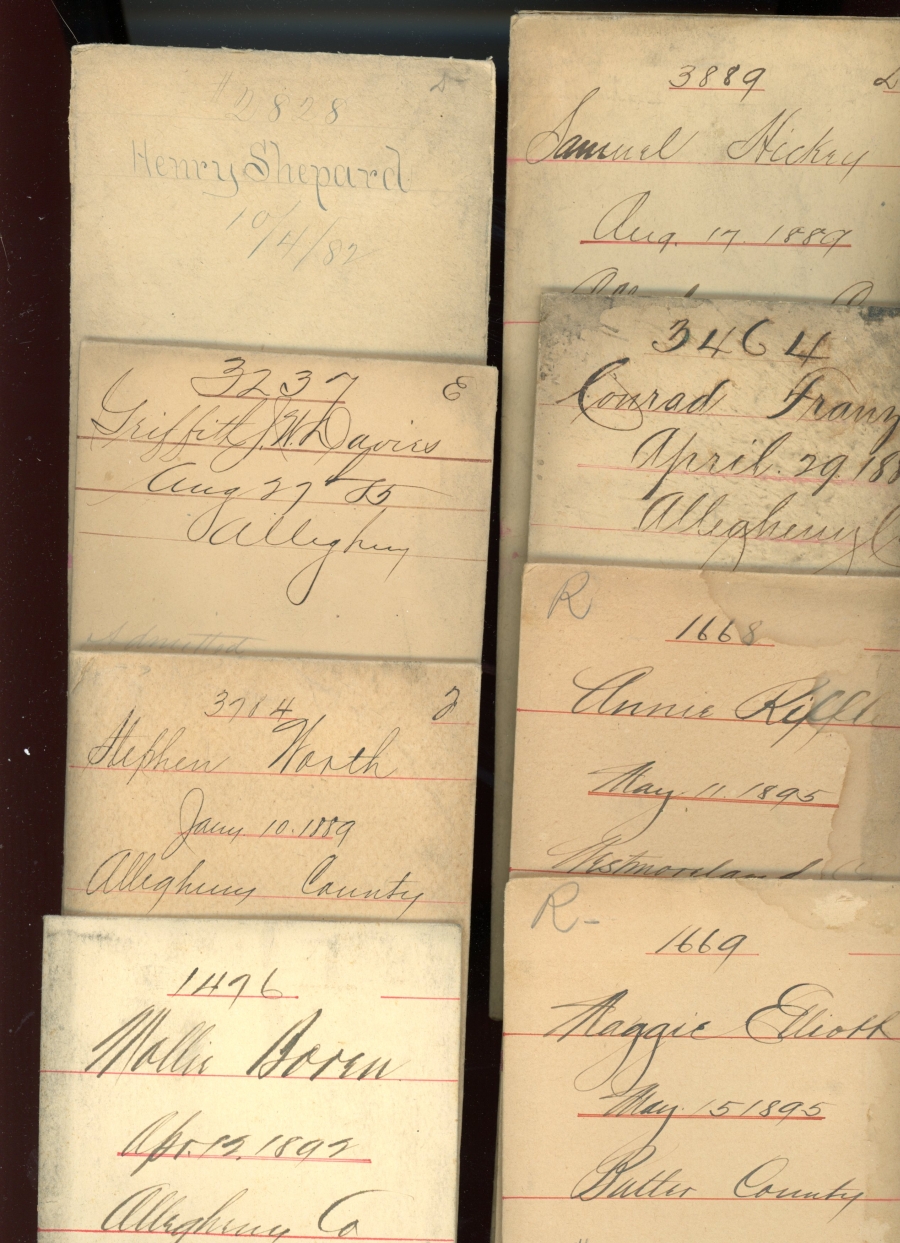 # 2828
Henry Shepard
10/4/82
3237 E
Griffith J. W. Davies
Aug 27 85
Allegheny
Admitted
3714
Stephen Worth
Jany 10. 1889
Allegheny County
1496
Mollie Boren
Apr. 12, 1892
Allegheny Co
3889
Samuel Hickey
Aug. 17. 1889
3464
Conrad Franz
April. 29. 188
Allegheny C
R
1668
Annie
May. 11. 1895
Westmoreland
R-
1669
Maggie Elliott
May. 15 1895
Butler County